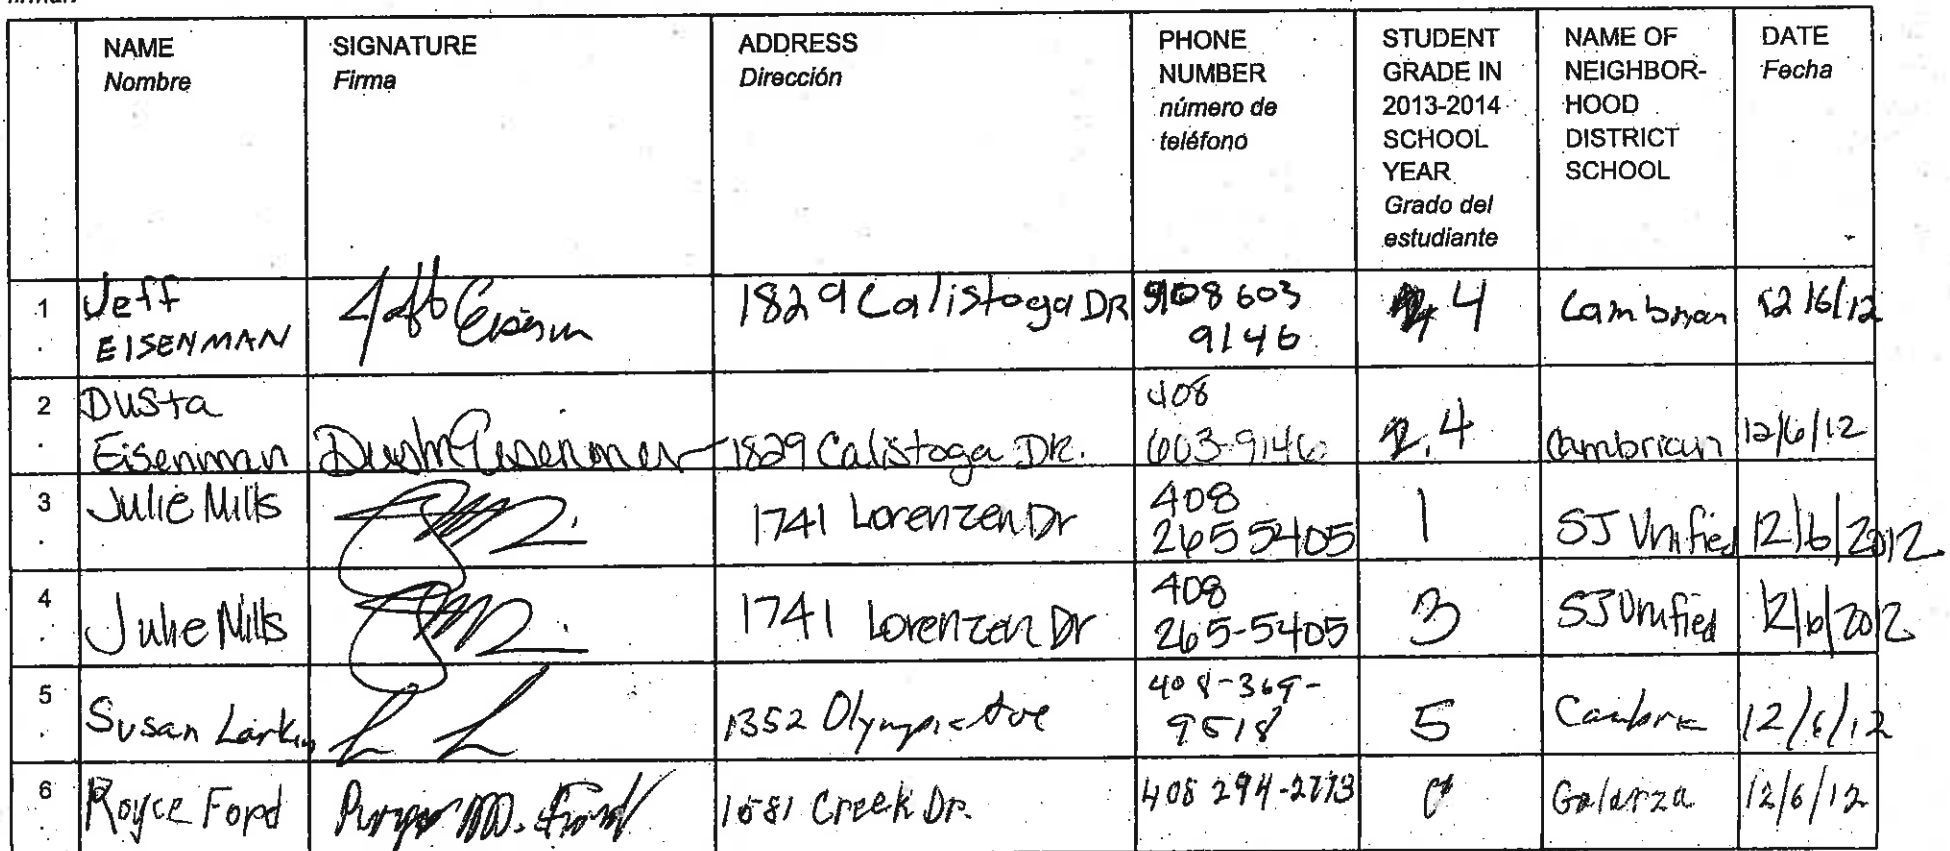 NAME
Nombre
SIGNATURE
Firma
ADDRESS
Dirección
PHONE
NUMBER
número de
teléfono
STUDENT
GRADE IN
2013-2014
SCHOOL
YEAR
Grado del
estudiante
NAME OF
NEIGHBOR-
HOOD
DISTRICT
SCHOOL
DATE
Fecha
1 Jeff
EISENMAN
1829 Calistoga DR
408 603
9146
4
Cambrian
12/6/12
2 Dusta
Eisenman
1829 Calistoga DR.
408
603-9146
4
Cambrian
12/6/12
3 Julie Mills
1741 Lorenzen Dr
408
265 5405
1
SJ Unified
12/6/2012
4 Julie Mills
1741 Lorenzen Dr
408
265-5405
3
SJ Unified
12/6/2012
5 Susan Larkin
1352 Olympic Ave
408-369-
9518
5
12/6/12
6 Royce Ford
Creek Dr.
408
Galarza
12/6/12